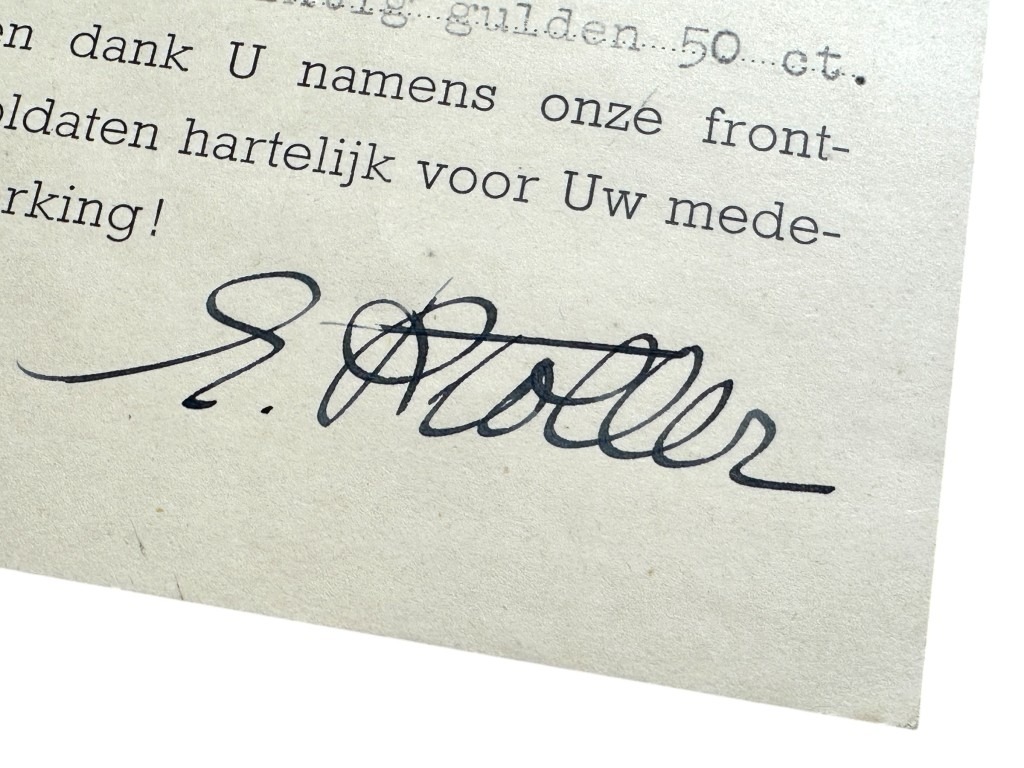 gulden 50 ct.
en dank U namens onze front-
oldaten hartelijk voor Uw mede-
rking!